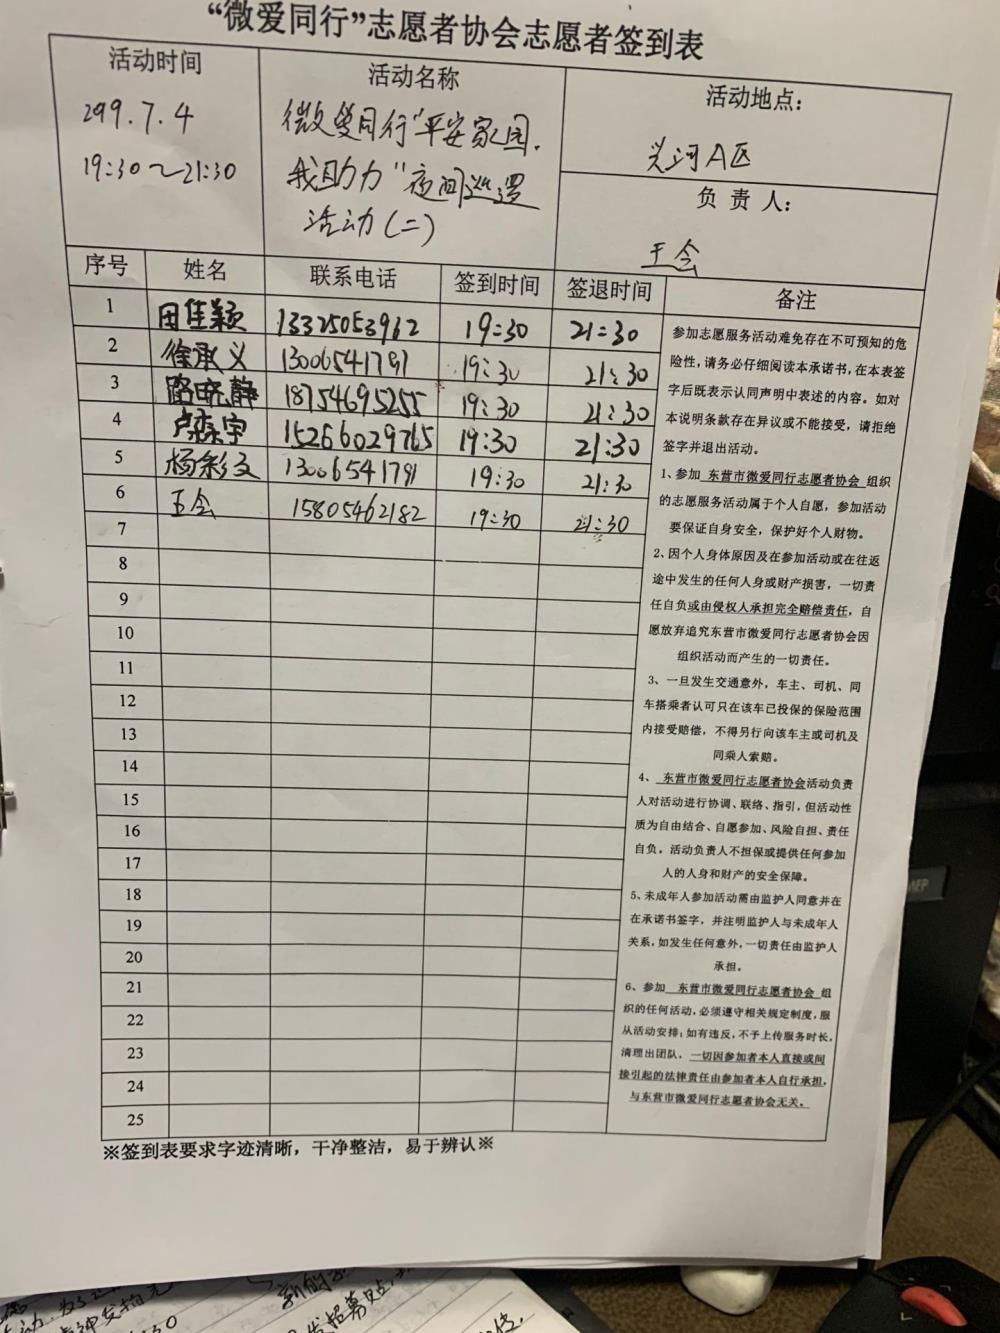 “微爱同行”志愿者协会志愿者签到表
活动时间
299.7.4
19:30～21:30
活动名称
微爱同行"平安家园.
我助力"夜间巡逻
活动(二)
活动地点：
A区
负 责 人：
王会
序号 姓名 联系电话 签到时间 签退时间 备注
1 田佳颖 13325053962 19:30 21:30
2 徐承义 13006541791 19:30 21:30
3 路晓静 18754695255 19:30 21:30
4 卢森宇 15266029765 19:30 21:30
5 杨彩文 13006541791 19:30 21:30
6 王会 15805462182 19:30 21:30
7
8
9
10
11
12
13
14
15
16
17
18
19
20
21
22
23
24
25
参加志愿服务活动难免存在不可预知的危
险性，请务必仔细阅读本承诺书，在本表签
字后既表示认同声明中表述的内容。如对
本说明条款存在异议或不能接受，请拒绝
签字并退出活动。
1、参加 东营市微爱同行志愿者协会 组织
的志愿服务活动属于个人自愿，参加活动
要保证自身安全，保护好个人财物。
2、因个人身体原因及在参加活动或在往返
途中发生的任何人身或财产损害，一切责
任自负或由侵权人承担完全赔偿责任，自
愿放弃追究东营市微爱同行志愿者协会因
组织活动而产生的一切责任。
3、一旦发生交通意外，车主、司机、同
车搭乘者认可只在该车已投保的保险范围
内接受赔偿，不得另行向该车主或司机及
同乘人索赔。
4、 东营市微爱同行志愿者协会活动负责
人对活动进行协调、联络、指引，但活动性
质为自由结合、自愿参加、风险自担、责任
自负。活动负责人不担保或提供任何参加
人的人身和财产的安全保障。
5、未成年人参加活动需由监护人同意并在
在承诺书签字，并注明监护人与未成年人
关系，如发生任何意外，一切责任由监护人
承担。
6、参加 东营市微爱同行志愿者协会 组
织的任何活动，必须遵守相关规定制度，服
从活动安排；如有违反，不予上传服务时长，
清理出团队，一切因参加者本人直接或间
接引起的法律责任由参加者本人自行承担，
与东营市微爱同行志愿者协会无关。
※签到表要求字迹清晰，干净整洁，易于辨认※